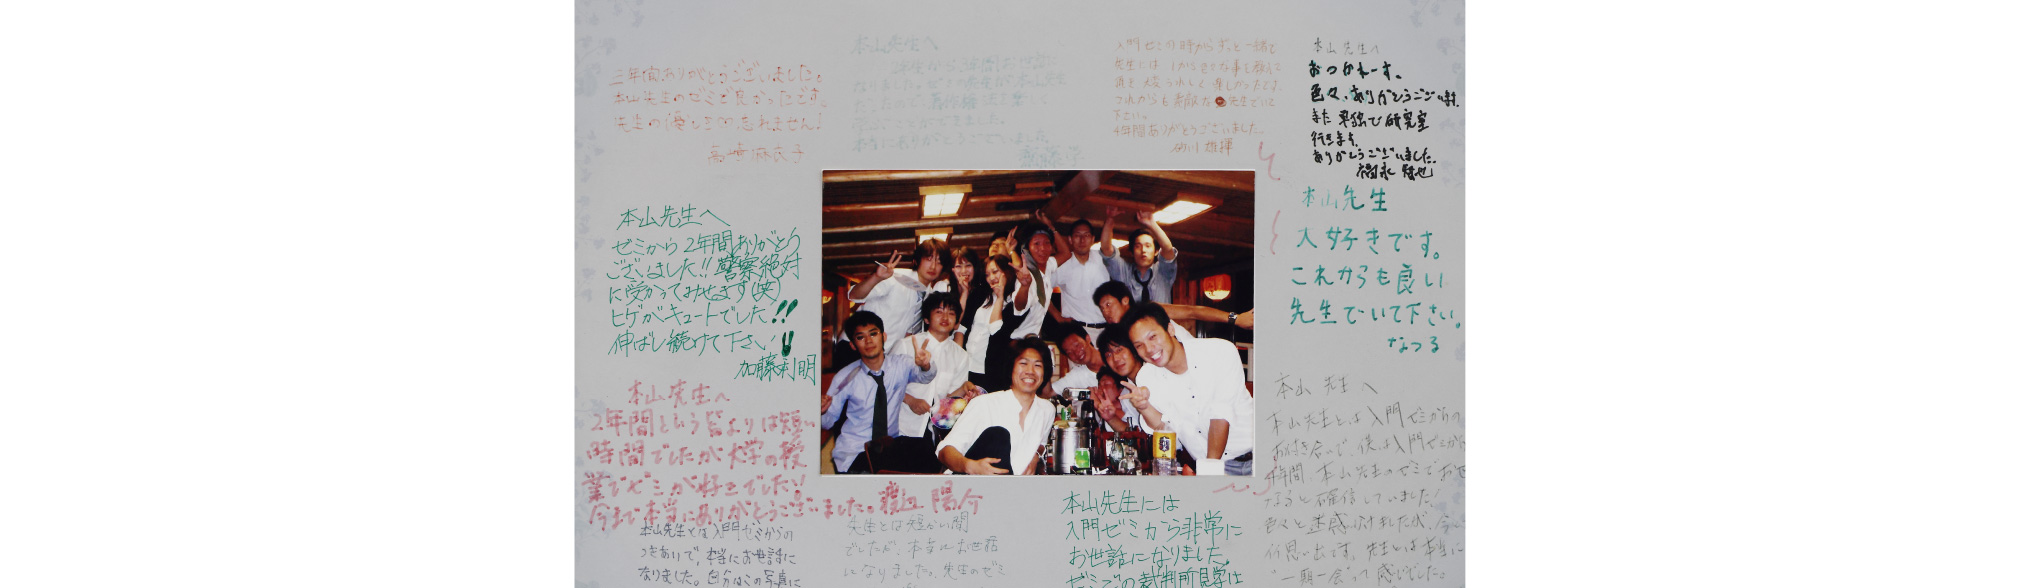 三年間ありがとうございました。
本山先生のゼミで良かったです。
先生の優しさ忘れません!
高崎麻衣子
本山先生へ
なりました。
学ぶことができました。
本当にありがとうございました。
齋藤学
入門ゼミの時からずっと一緒で
先生には 1から色々な事を教えて
頂き大変うれしく楽しかったです。
これからも素敵な先生でいて
下さい。
4年間ありがとうございました。
砂川 雄揮
本山先生へ
おつかれーす。
色々、ありがとうございます。
また 単独で研究室
行きます。
ありがとうございました。
福永 隆也
本山先生
大好きです。
これからも良い
先生でいて下さい。
なつる
本山先生へ
ゼミから2年間ありがとう
ございました!!警察絶対
に受かってみせます(笑)
ヒゲがキュートでした!!
伸ばし続けて下さい!!
加藤利明
本山先生へ
2年間という皆よりは短い
時間でしたが大学の授
業でゼミが好きでした!!
今まで本当にありがとうございました。渡辺 陽介
本山 先生 へ
本山先生とは入門ゼミからの
お付き合いで、僕は入門ゼミから
4年間、本山先生のゼミでお世
なると確信していました!
色々と迷惑かけましたが、今
思い出です。先生とは本当に
"一期一会"って感じでした。
本山先生とは入門ゼミからの
つきあいで、本当にお世話に
なりました。自分はこの写真に
先生とは短かい間
でしたが、本当にお世話
になりました。先生のゼミ
本山先生には
入門ゼミから非常に
お世話になりました。
ゼミでの裁判所見学は